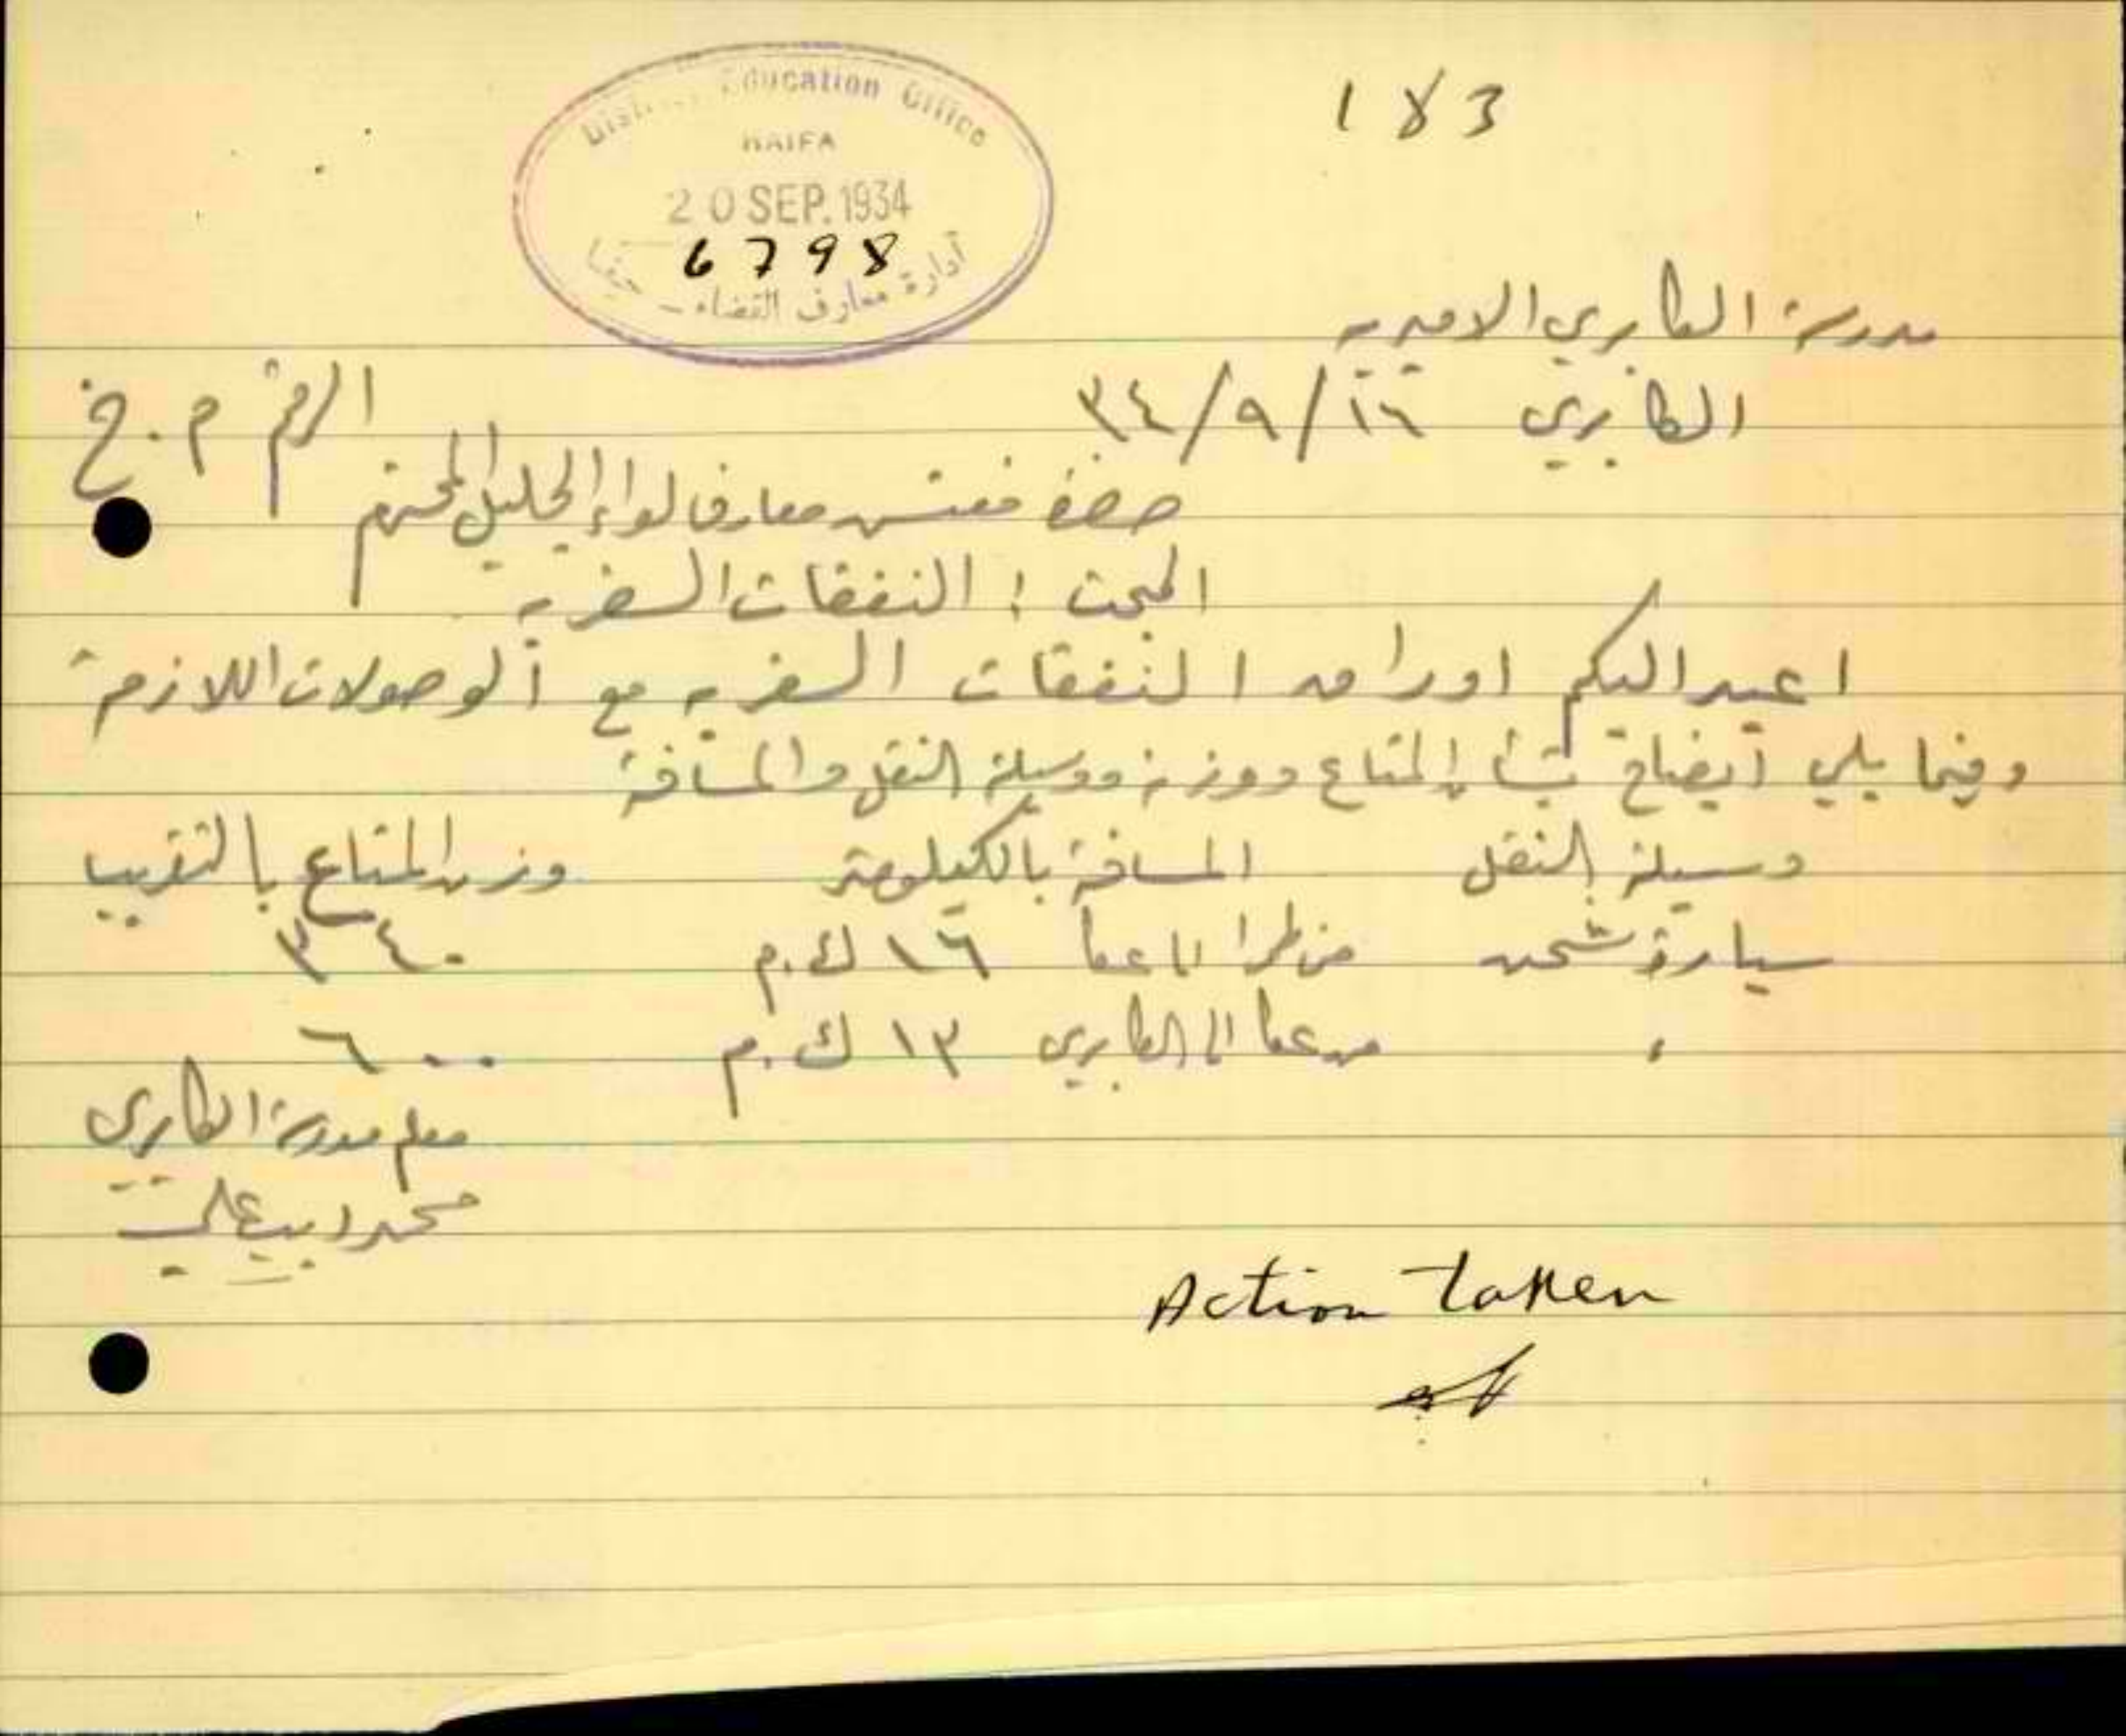 183
District Education Office
HAIFA
20 SEP. 1934
6798
أدارة معارف القضاء - حيفا
مدرسة الكابري الاميرية
الكابري ١٦/٩/٣٤
الرقم م.خ
حضرة مفتش معارف لواء الجليل المحترم
المبحث : النفقات السفرية
اعيد اليكم اوراق النفقات السفرية مع الوصولات اللازمة
وفيما يلي ايضاح بشأن المتاع ووزنه ووسيلة النقل والمسافة
وسيلة النقل المسافة بالكيلومتر وزن المتاع بالتقريب
سيارة شحن من الى عكا ١٦ ك.م ٣٤٠
، من عكا الى الكابري ١٣ ك.م ٦٠٠
معلم مدرسة الكابري
محمد اديب علي
Action taken